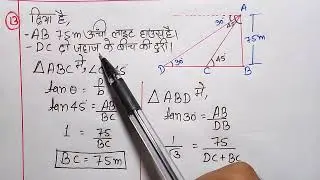 13 दिया है,
- AB 75m ऊँची लाइट हाउस है।
- DC दो जहाज के बीच की दूरी।
△ABC में,
tanθ = P/b
tan45° = AB/BC
1 = 75/BC
BC = 75m
△ABD में,
tan30° = AB/DB
1/√3 = 75/(DC+BC)
A
30°
45°
75m
D 30° C 45° B